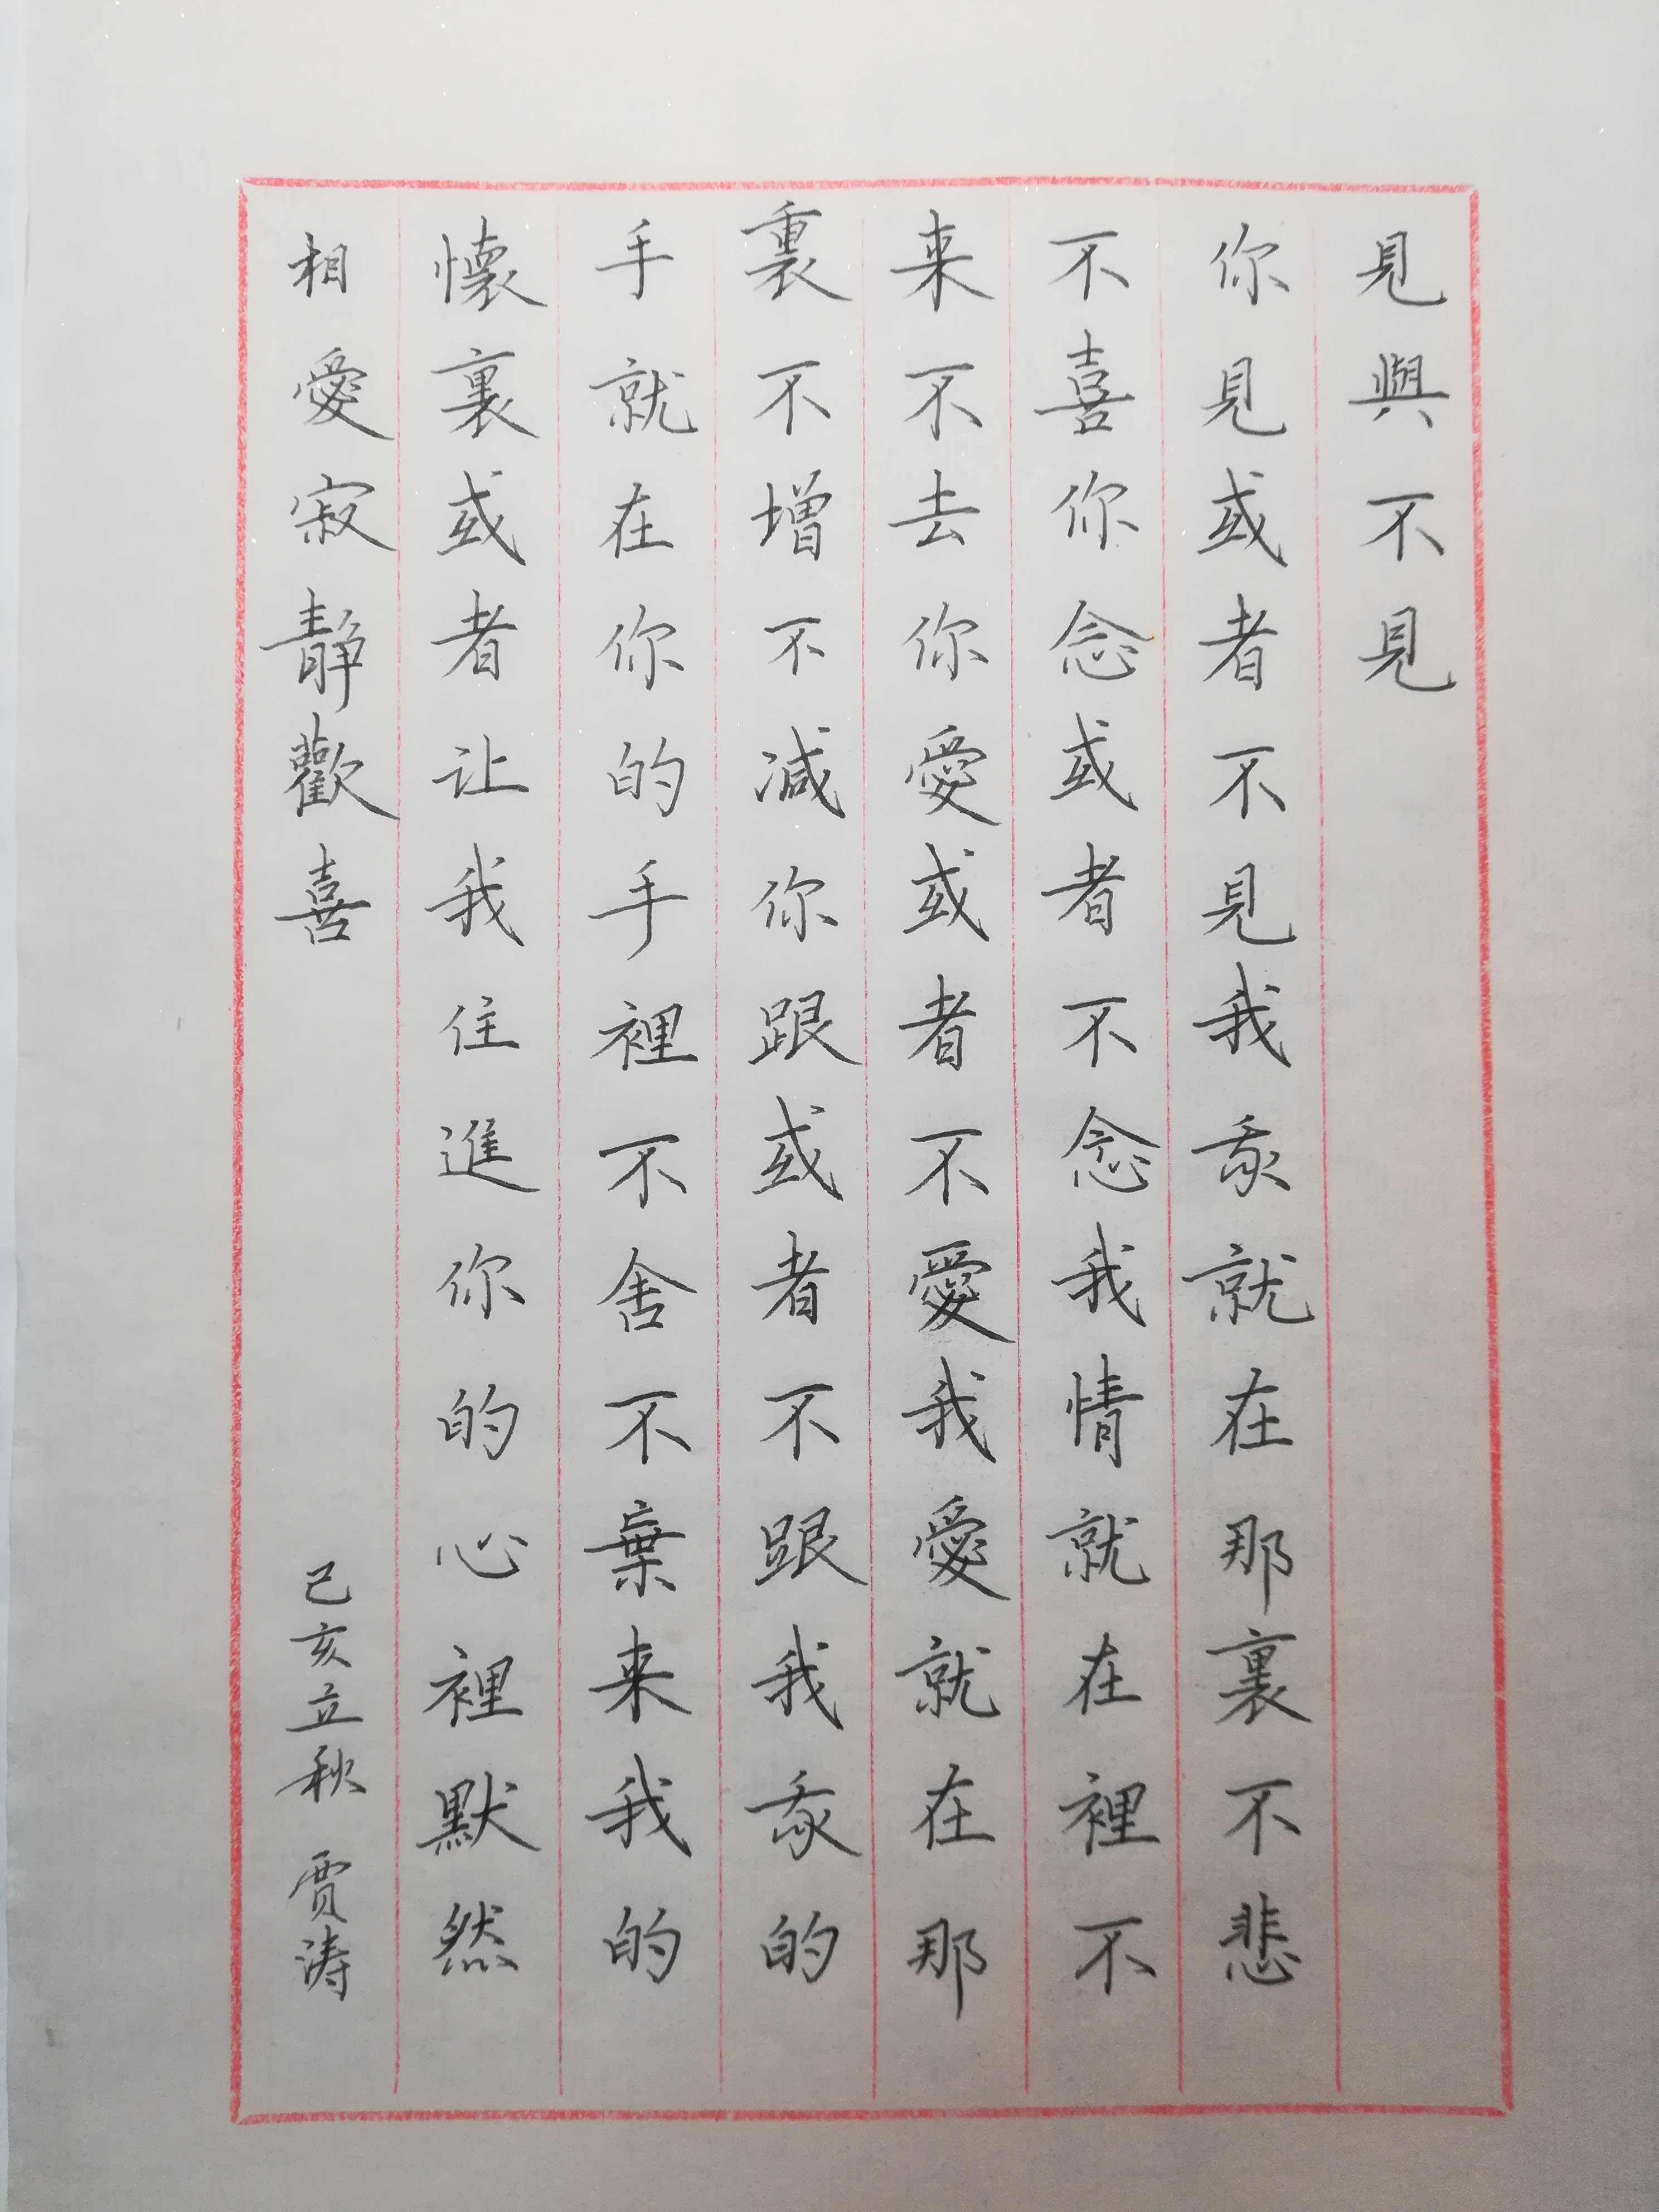 見與不見
你見或者不見我就在那裏不悲
不喜你念或者不念我情就在裡不
来不去你愛或者不愛我愛就在那
裏不增不減你跟或者不跟我的
手就在你的手裡不舍不棄来我的
懷裏或者让我住進你的心裡默然
相愛寂静歡喜
己亥立秋 贾涛